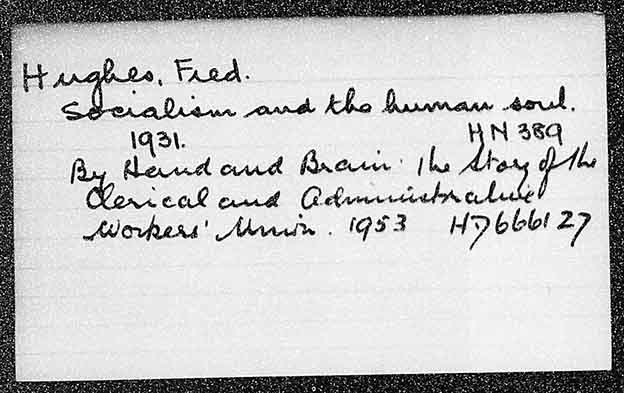 Hughes, Fred.
Socialism and the human soul.
1931. HN 389
By Hand and Brain. The Story of the
Clerical and Administrative
Workers' Union. 1953 HD6661 27